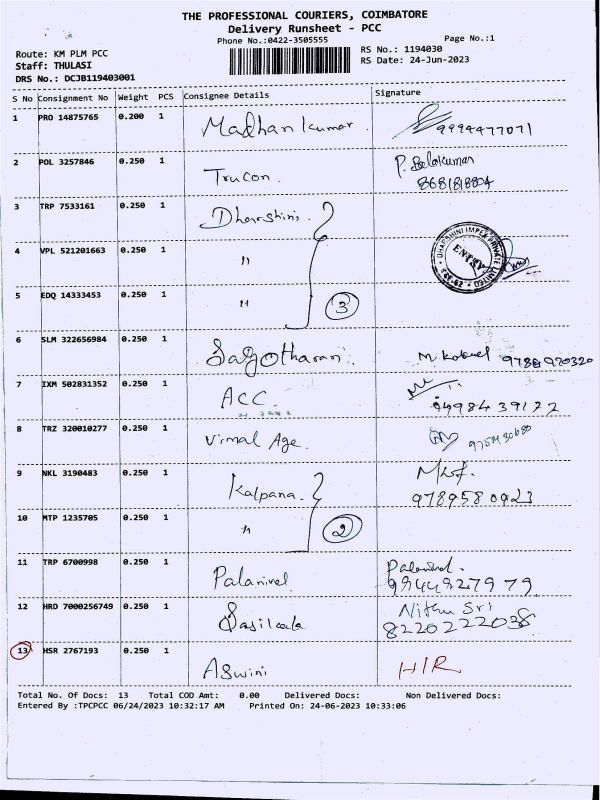 THE PROFESSIONAL COURIERS, COIMBATORE
Delivery Runsheet - PCC
Phone No.:0422-3505555 Page No.:1
Route: KM PLM PCC RS No.: 1194030
Staff: THULASI RS Date: 24-Jun-2023
DRS No.: DCJB119403001
S No Consignment No Weight PCS Consignee Details Signature
1 PRO 14875765 0.200 1 Madhan kumar 9994477071
2 POL 3257846 0.250 1 Trucon P. Balakumar
8681818804
3 TRP 7533161 0.250 1 Dharshini
4 VPL 521201663 0.250 1 " ENTRY
5 EDQ 14333453 0.250 1 " 3
6 SLM 322656984 0.250 1
7 IXM 502831352 0.250 1 ACC. 9498439172
8 TRZ 320010277 0.250 1 Vimal Age.
9 NKL 3190483 0.250 1 Kalpana
9789580923
10 MTP 1235705 0.250 1 " 2
11 TRP 6700998 0.250 1 Palanivel Palanivel.
9944827979
12 HRD 7000256749 0.250 1 Nithu Sri
8220222038
13 HSR 2767193 0.250 1 Aswini H/R
Total No. Of Docs: 13 Total COD Amt: 0.00 Delivered Docs: Non Delivered Docs:
Entered By :TPCPCC 06/24/2023 10:32:17 AM Printed On: 24-06-2023 10:33:06